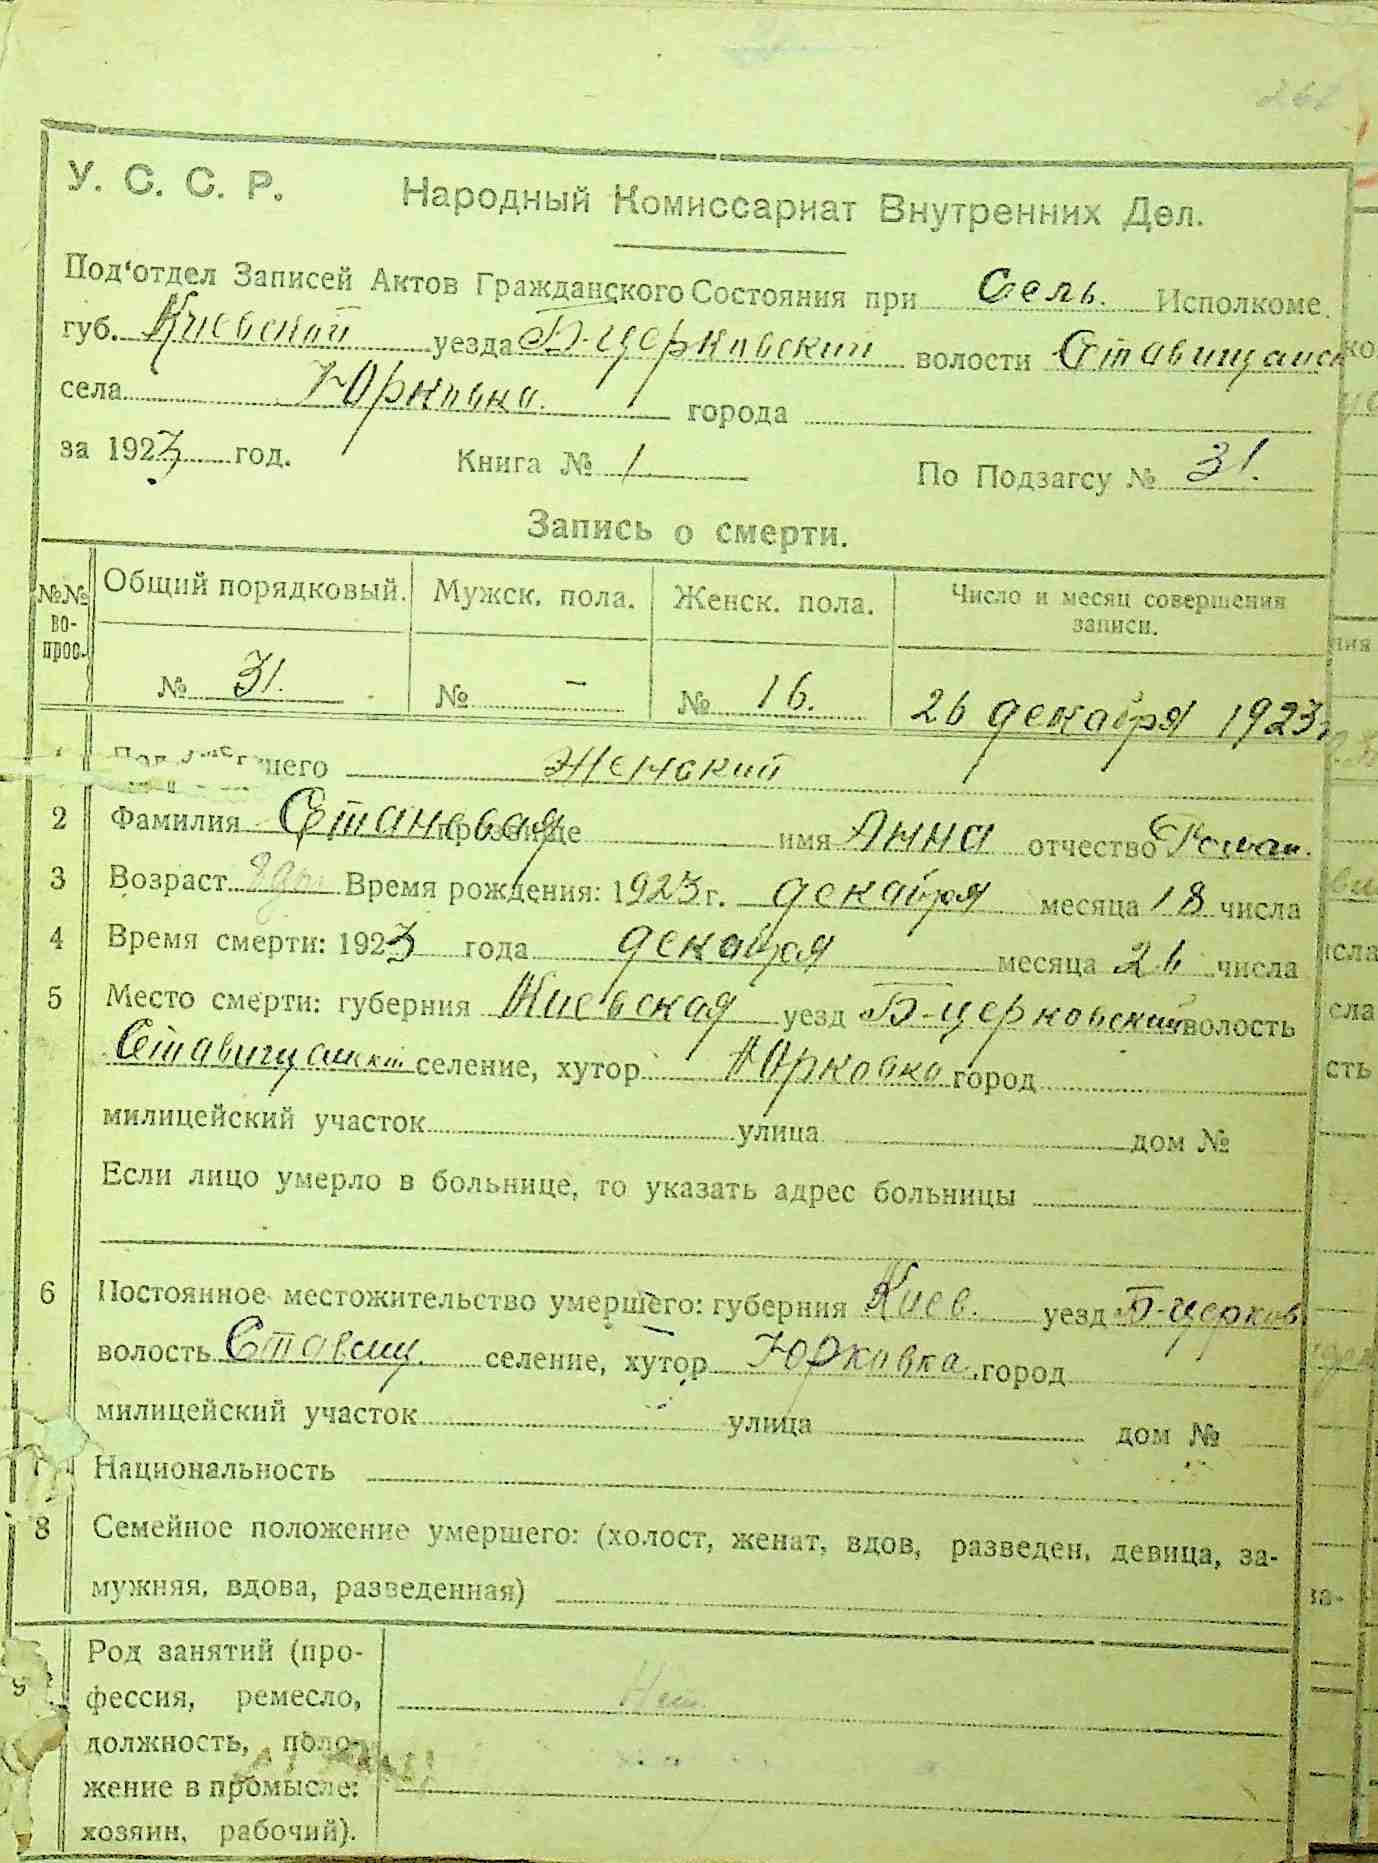 261
У. С. С. Р. Народный Комиссариат Внутренних Дел.
Под'отдел Записей Актов Гражданского Состояния при Сель. Исполкоме.
губ. Киевской уезда Б-церковский волости Ставищанск
села Юрковка. города
за 1923 год. Книга № 1 По Подзагсу № 31.
Запись о смерти.
№№ во- прос. Общий порядковый. Мужск. пола. Женск. пола. Число и месяц совершения записи.
№ 31. № - № 16. 26 декабря 1923
Женский
2 Фамилия прозвище имя Анна отчество Роман.
3 Возраст Время рождения: 1923 г. декабря месяца 18 числа
4 Время смерти: 1923 года декабря месяца 26 числа
5 Место смерти: губерния Киевская уезд Б-церковский волость
селение, хутор Юрковка город
милицейский участок улица дом №
Если лицо умерло в больнице, то указать адрес больницы
6 Постоянное местожительство умершего: губерния Киев. уезд Б-церков
волость Ставищ. селение, хутор Юрковка город
милицейский участок улица дом №
7 Национальность
8 Семейное положение умершего: (холост, женат, вдов, разведен, девица, за-
мужняя, вдова, разведенная)
9 Род занятий (про-
фессия, ремесло, Нет.
должность, поло-
жение в промысле:
хозяин, рабочий).